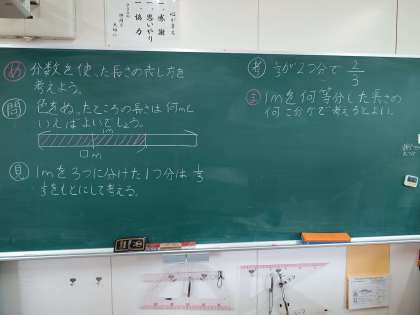 心が育つ
一、感謝
一、思いやり
一、協力
め 分数を使った長さの表し方を
考えよう。
問 色をぬったところの長さは何mと
いえばよいでしょう。
1m
□m
見 1mを3つに分けた1つ分は 1/3
1/3をもとにして考える。
考 1/3が2つ分で 2/3
ま 1mを何等分した長さの
何こ分かで考えるとよい。